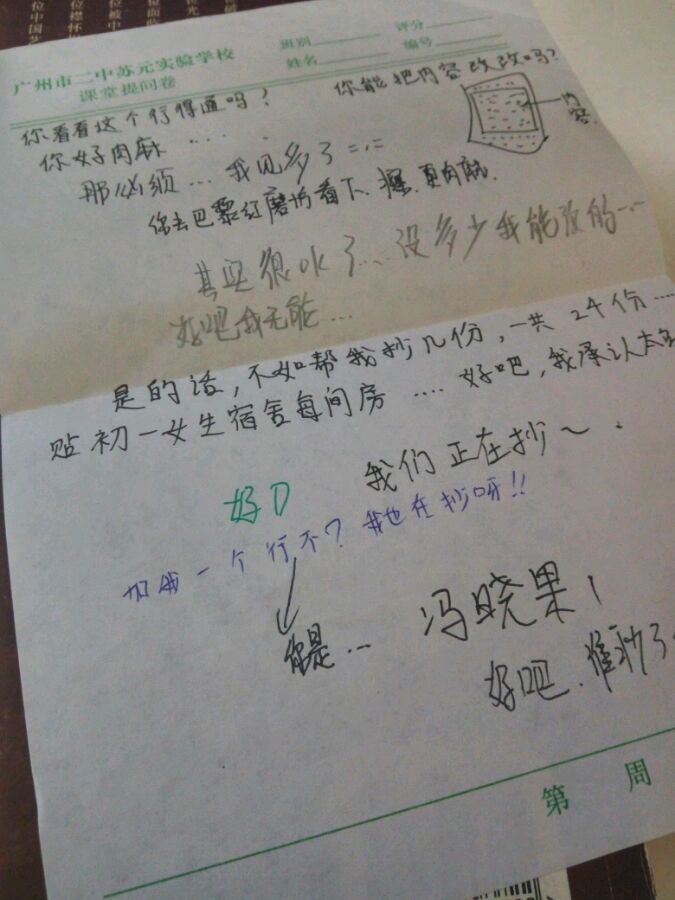 广州市二中苏元实验学校
课堂提问卷
班别
评分
姓名
编号
你看看这个行得通吗？
你能把内容改改吗？
内容
你好肉麻……
那必须…我见多了=.=
你去巴黎红磨坊看下、更肉麻.
其实很水了…没多少我能改的……
好吧我无能…
是的话，不如帮我抄几份，一共24份……
贴初一女生宿舍每间房……好吧，我承认太多
我们正在抄～.
好D
加我一个行不？我也在抄呀!!
你是…
冯晓果！
好吧、抄了
第 周